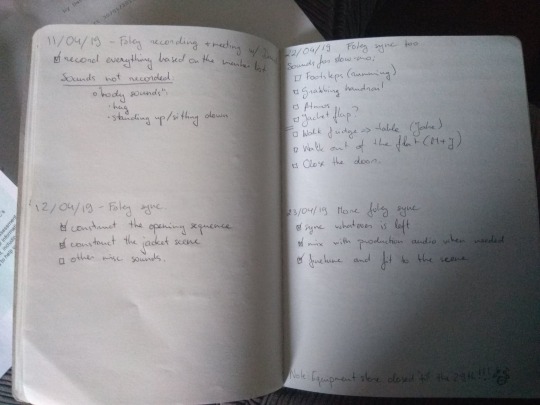 11/04/19 - Foley recording + meeting w/
record everything based on the master list
Sounds not recorded:
"body sounds"
· hug
· standing up/sitting down
12/04/19 - Foley sync
construct the opening sequence
construct the jacket scene
other misc sounds.
22/04/19 Foley sync too
Sounds for slow-mo:
Footsteps (running)
Grabbing handrail
Atmos
Jacket flap?
Walk fridge => table (Jake)
Walk out of the flat (M+J)
Close the door.
23/04/19 More foley sync
sync whatever is left
mix with production audio when needed
finetune and fit to the scene.
Note: Equipment store closed the 29th!!!